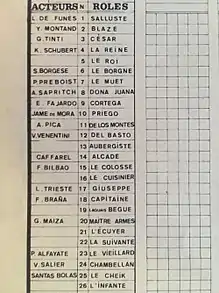 ACTEURS N ROLES
L. DE FUNÈS 1 SALLUSTE
Y. MONTAND 2 BLAZE
G. TINTI 3 CÉSAR
K. SCHUBERT 4 LA REINE
5 LE ROI
S. BORGESE 6 LE BORGNE
P. PREBOIST 7 LE MUET
A. SAPRITCH 8 DONA JUANA
E. FAJARDO 9 CORTEGA
JAME DE MORA 10 PRIEGO
A. PICA 11 DE LOS MONTES
V. VENENTINI 12 DEL BASTO
13 AUBERGISTE
CAFFAREL 14 ALCADE
F. BILBAO 15 LE COLOSSE
16 LE CUISINIER
L. TRIESTE 17 GIUSEPPE
F. BRAÑA 18 CAPITAINE
19 LAQUAIS BEGUE
G. MAIZA 20 MAÎTRE ARMES
21 L'ÉCUYER
22 LA SUIVANTE
P. ALFAYATE 23 LE VIEILLARD
V. SALIER 24 CHAMBELLAN
SANTAS BOLAS 25 LE CHEIK
26 L'INFANTE